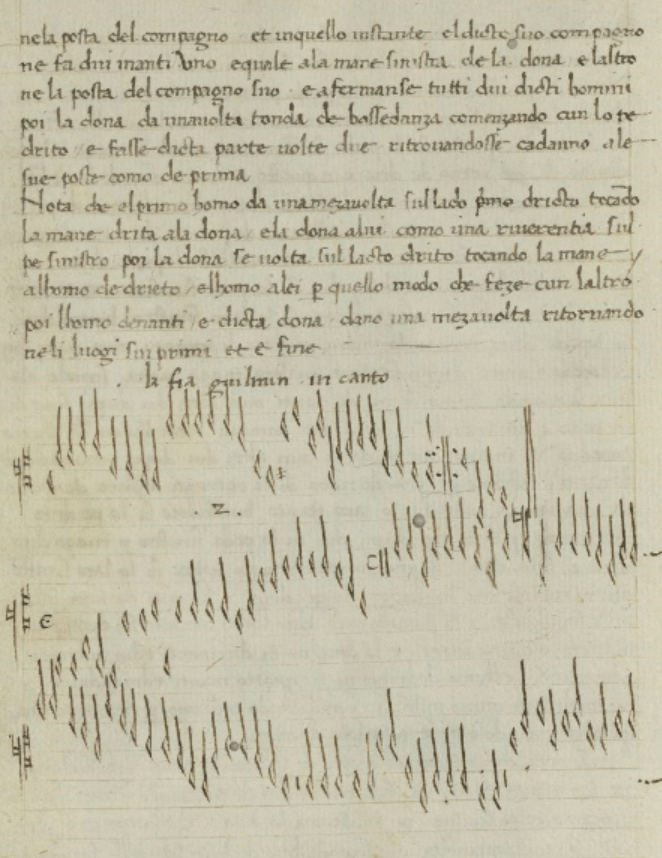 nela posta del compagno et inquello instante el dicto suo compagno
ne fa dui inanti Uno equale ala mane sinistra de la dona e laltro
ne la posta del compagno suo e afermanse tutti dui dicti homini
poi la dona da unavolta tonda de bassadanza comenzando cun lo pe
drito e fasse dicta parte volte due ritrovandosse cadauno ale
sue poste como de prima
Nota che el primo homo da una mezavolta sul lado pmo dricto tocado
la mane drita ala dona e la dona alui como una riverentia sul
pe sinistro poi la dona se volta sul lacto drito tocando la mane
alhomo de drieto elhomo alei p quello modo che feze cun laltro
poi lhomo denanti e dicta dona dano una mezavolta ritornando
neli luogi sui primi et e fine
la fia guilmin in canto
.2.